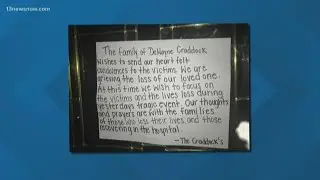 13newsnow.com
The family of DeWayne Craddock
wishes to send our heart felt
condolences to the victims. We are
grieving the loss of our loved one.
At this time we wish to focus on
the victims and the lives loss during
yesterdays tragic event. Our thoughts
and prayers are with the families
of those who lose their lives, and those
recovering in the hospital.
- The Craddock's